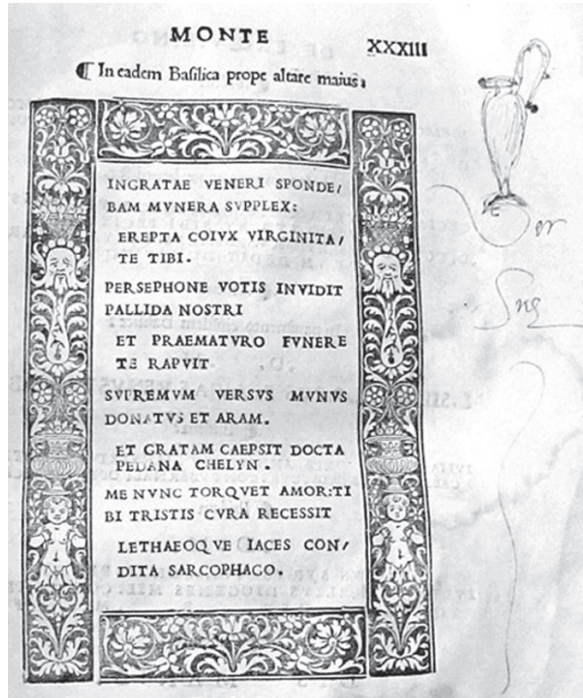 MONTE
XXXIII
¶ In eadem Basilica prope altare maius,
INGRATAE VENERI SPONDE/
BAM MVNERA SVPPLEX:
EREPTA COIVX VIRGINITA/
TE TIBI.
PERSEPHONE VOTIS INVIDIT
PALLIDA NOSTRI
ET PRAEMATVRO FVNERE
TE RAPVIT
SVPREMVM VERSVS MVNVS
DONATVS ET ARAM.
ET GRATAM CAEPSIT DOCTA
PEDANA CHELYN.
ME NVNC TORQVET AMOR:TI
BI TRISTIS CVRA RECESSIT
LETHAEOQVE IACES CON/
DITA SARCOPHAGO.